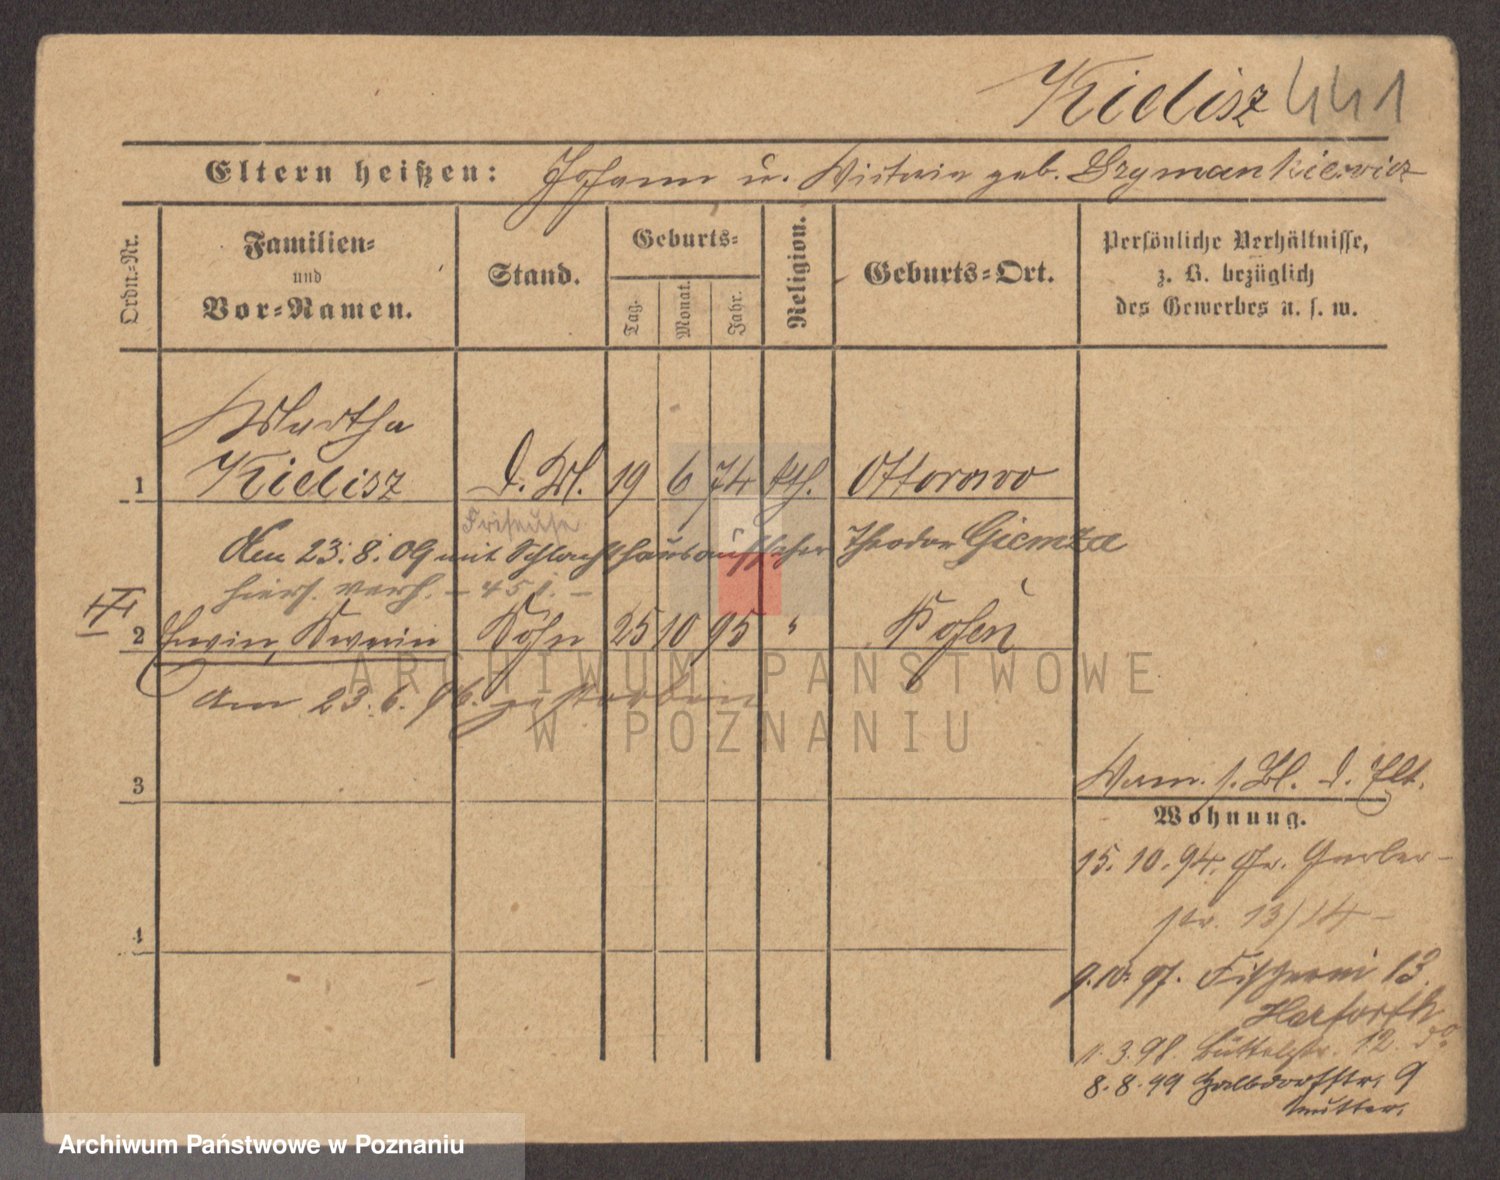 Kielisz 441
Eltern heißen: Johann u. Victoria geb. Szymankiewicz
Ordn.-Nr.
Familien-
und
Vor-Namen.
Stand.
Geburts-
Tag.
Monat.
Jahr.
Religion.
Geburts-Ort.
Persönliche Verhältnisse,
z. B. bezüglich
des Gewerbes u. s. w.
Martha
1 Kielisz d. Bl. 19 6 74 kth. Ottorowo
Friseuse
Am 23.8.09 mit Schlachthausaufseher Theodor Giemza
hiers. verh. - 451. -
2 Erwin, Sohn 25 10 95 " Posen
am 23.6.96. gestorben
3
4
Vam. s. Bl. d. Elt.
Wohnung.
15.10.94. Gr. Gerber-
str. 13/14 -
9.10.97. Fischerei 13
1.3.98. Büttelstr. 12. do
8.8.99 Halbdorfstr. 9
Mutter.
ARCHIWUM PAŃSTWOWE
W POZNANIU
Archiwum Państwowe w Poznaniu